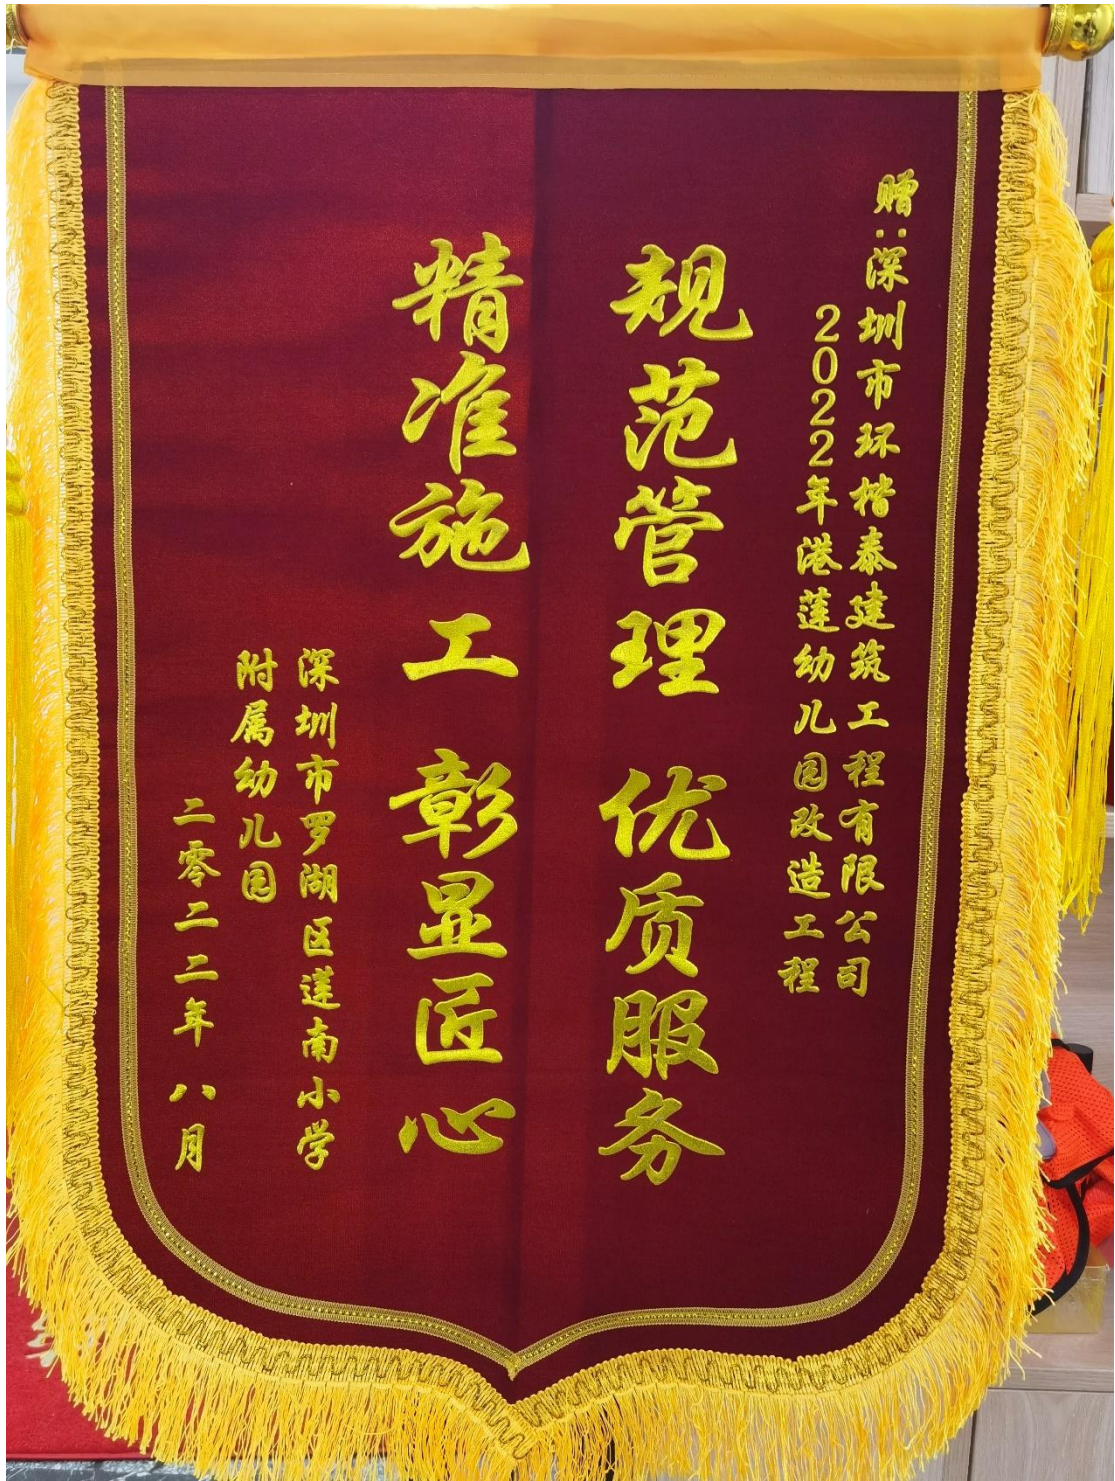 赠:深圳市环楷泰建筑工程有限公司
2022年港莲幼儿园改造工程
规范管理 优质服务
精准施工 彰显匠心
深圳市罗湖区莲南小学
附属幼儿园
二零二二年 八月